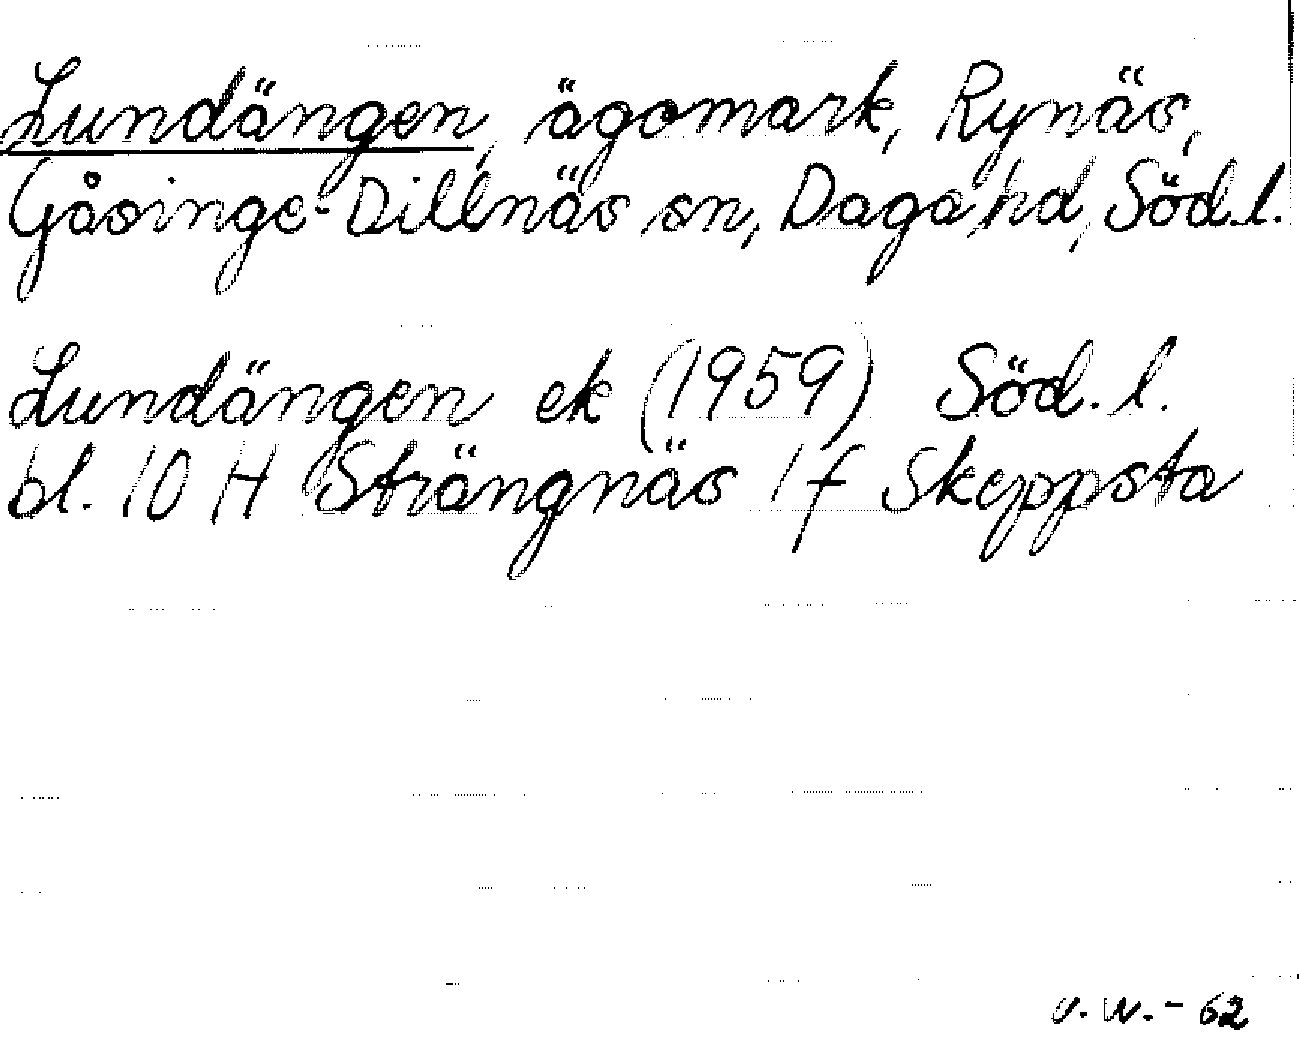 Lundängen, ägomark, Rynäs,
Gåsinge-Dillnäs sn, Daga hd, Söd.l.
Lundängen ek (1959) Söd.l.
bl. 10 H Strängnäs 1 f Skeppsta
v.w.-62